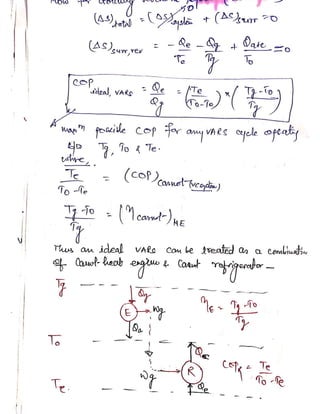 (ΔS)total = (ΔS)system + (ΔS)surr = 0
(ΔS)surr,rev = - Qe/Te - Qg/Tg + Qa+c/To = 0
COP ideal, VARS = Qe/Qg = (Te/To-Te) × (Tg-To/Tg)
maxm possible COP for any VARS cycle operating
b/w Tg, To & Te.
where,
Te/To-Te = (COP) Carnot
Tg-To/Tg = (η carnot)HE
Thus an ideal VARS can be treated as a combination
of Carnot heat engine & Carnot refrigerator -
Tg
Qg
E
Wg
ηE = Tg-To/Tg
Qa
To
Wg
R
Qc
COPR = Te/To-Te
Te
Qe